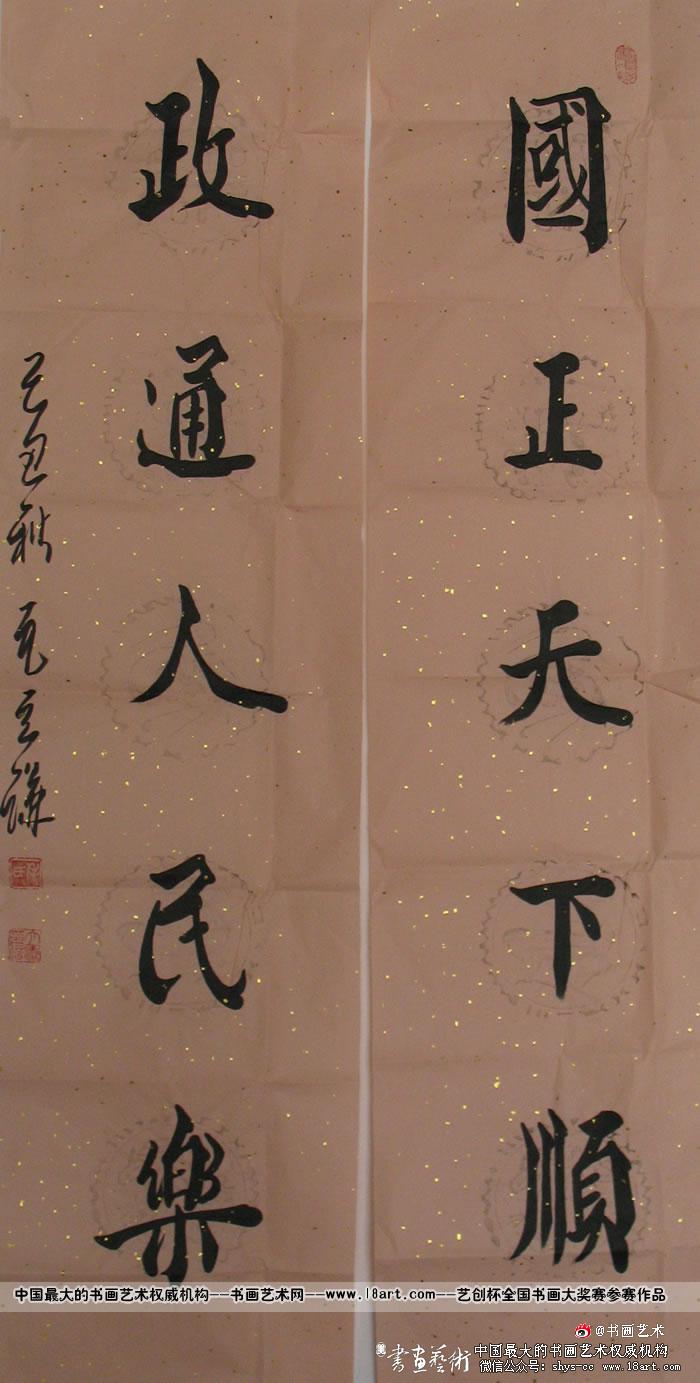 國正天下順
政通人民樂
己丑秋
中国最大的书画艺术权威机构——书画艺术网——www.18art.com——艺创杯全国书画大奖赛参赛作品
@书画艺术
書畫藝術 中国最大的书画艺术权威机构
微信公众号：shys-cc www.18art.com